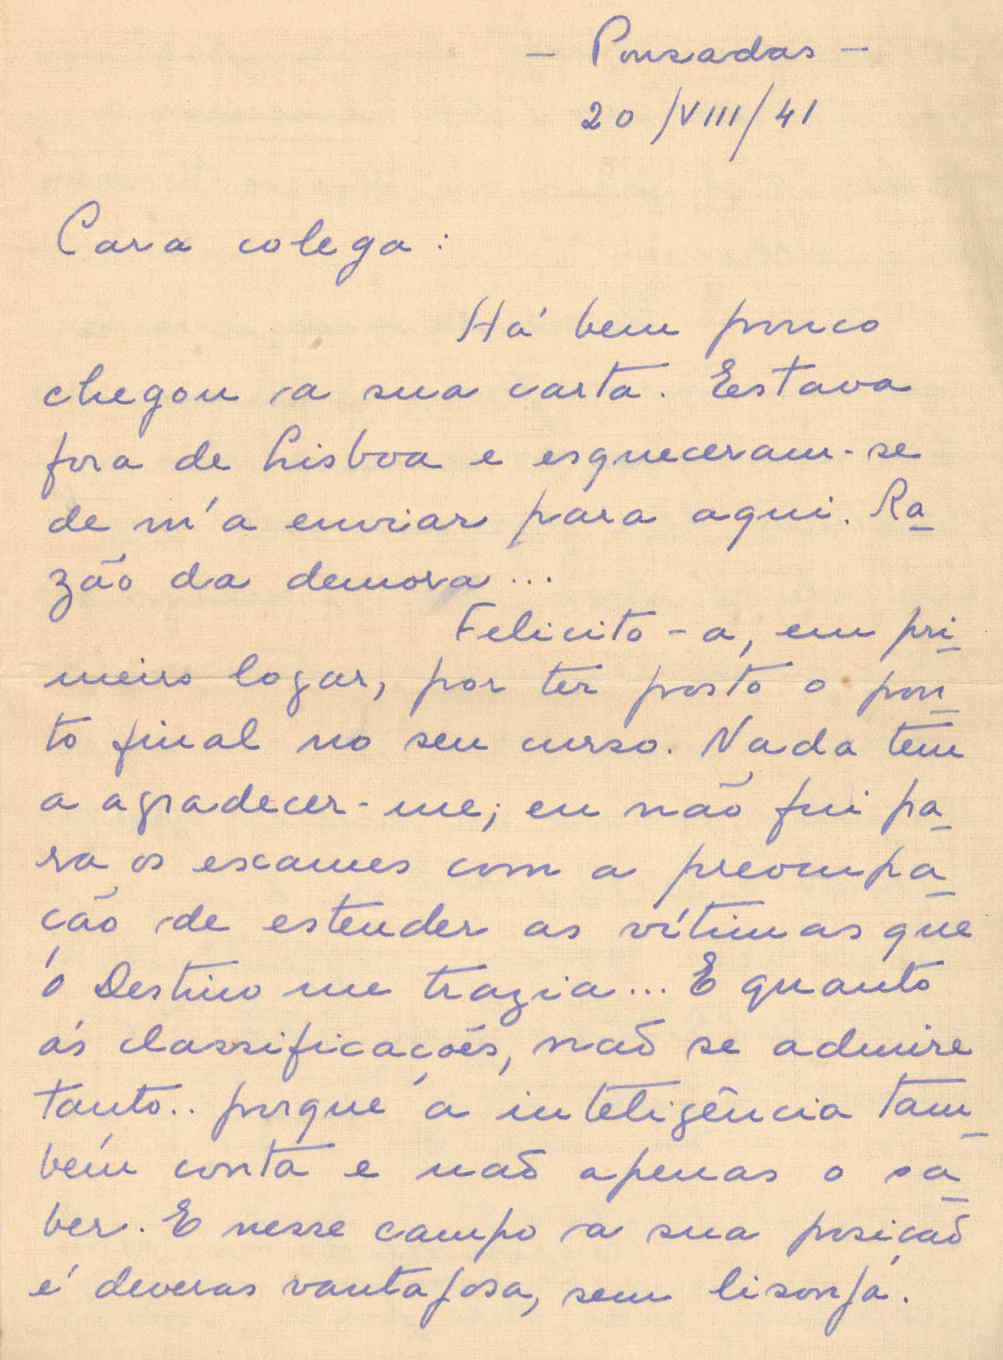 - Pousadas -
20/VIII/41
Cara colega:
Há bem pouco
chegou a sua carta. Estava
fora de Lisboa e esqueceram-se
de m'a enviar para aqui. Ra-
zão da demora...
Felicito-a, em pri-
meiro logar, por ter posto o pon-
to final no seu curso. Nada tem
a agradecer-me; eu não fui pa-
ra os exames com a preocupa-
ção de estender as vítimas que
o Destino me trazia... E quanto
ás classificações, não se admire
tanto.. porque a inteligência tam-
bém conta e não apenas o sa-
ber. E nesse campo a sua posição
é deveras vantajosa, sem lisonja.